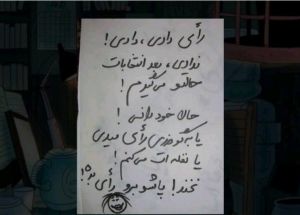 رأی دادی، دادی!
ندادی، بعد انتخابات
حالتو می‌گیرم!
حالا خود دانی!
یا به گو خوری رأی میدی
یا نفله ات می‌کنم!
نخند! پاشو برو رأی بده!